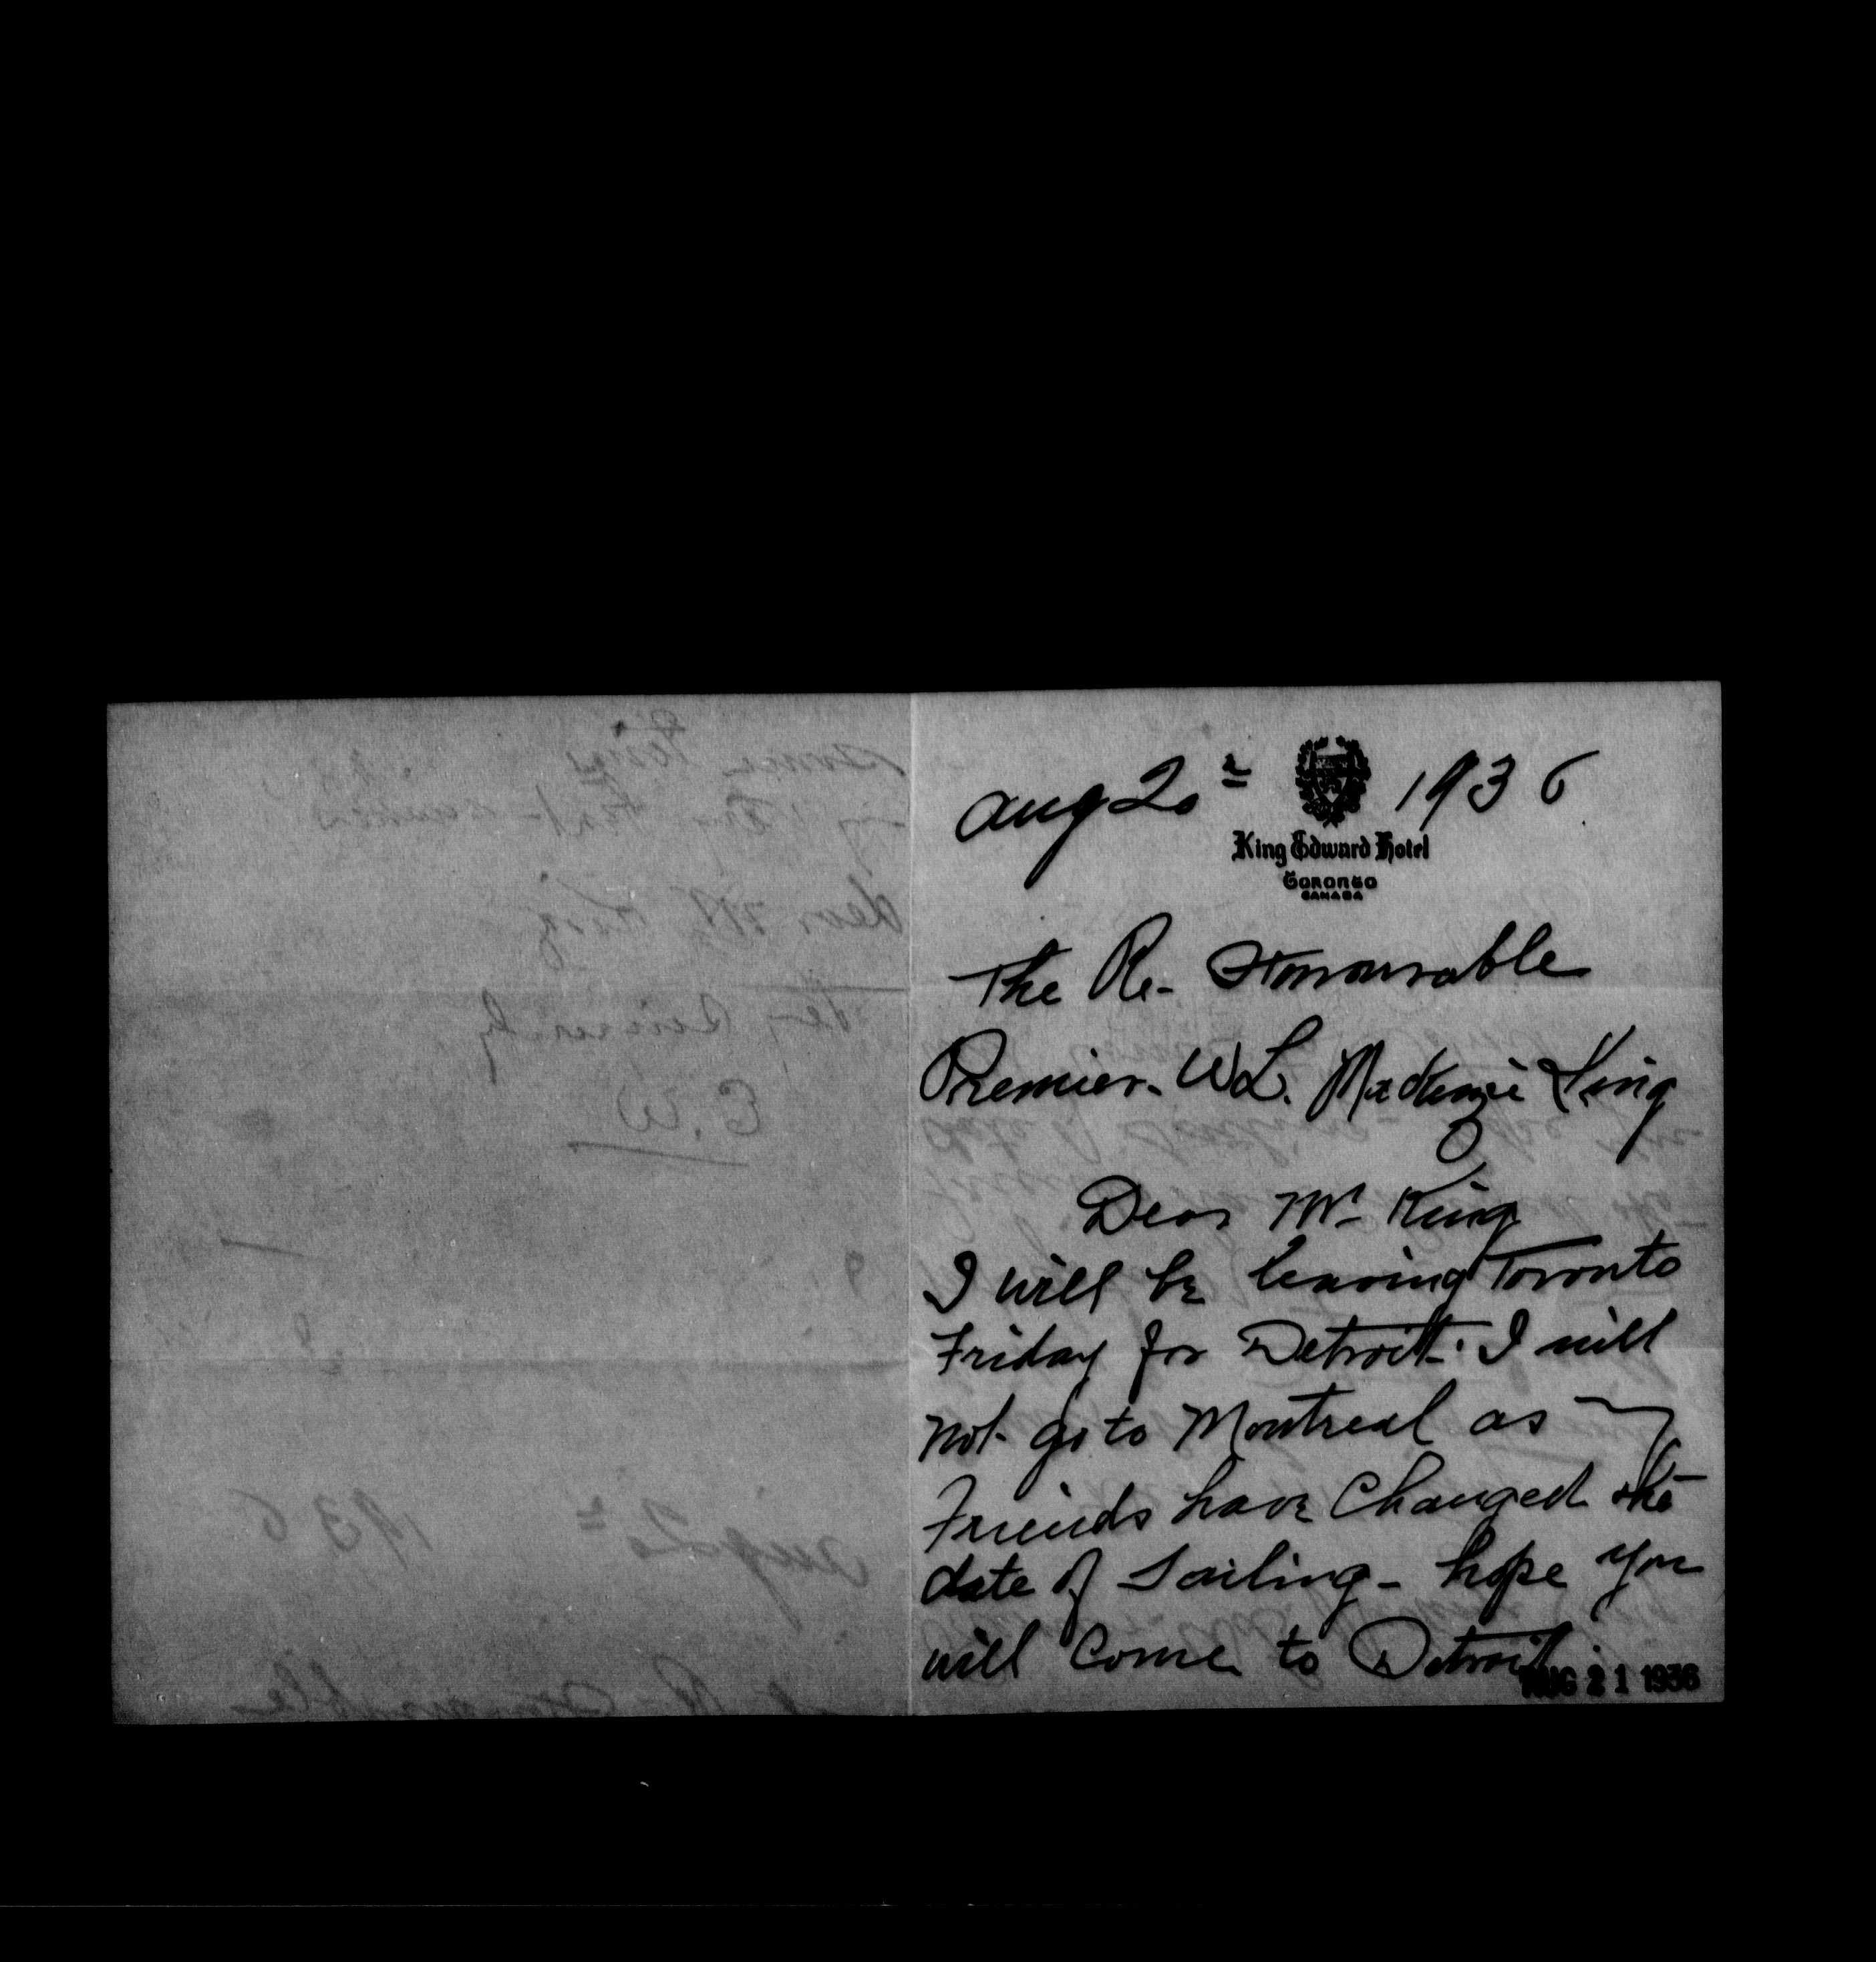 Aug 20th 1936
King Edward Hotel
Toronto
Canada
The Rt- Honourable
Premier. W L. Mackenzie King
Dear Mr King
I will be leaving Toronto
Friday for Detroit. I will
not go to Montreal as
Friends have Changed the
date of Sailing - hope you
will come to Detroit.
AUG 21 1936
dear Mr King
Very Sincerely
E.W